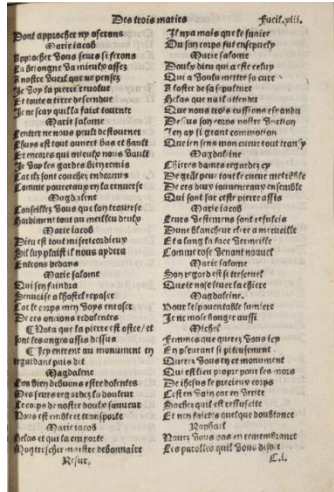 Des trois maries
Fueil. viii.
Dont approcher ny oserons
Marie iacob
Approcher vous seurs si ferons
La besongne va mieulx assez
A nostre vueil que ne pensez
Je voy la pierre
Et toute a terre descendue
Je ne scay qui la faict
Marie salome
Lentree ne nous peult destourner
Lhuys est tout ouvert bas et hault
Et encores qui mieulx nous vault
Je voy les gardes
Car ilz sont couchez endormis
Comme pourceaux en la
Magdalene
Conseillez vous que lon traverse
Hardiment tout au meillieu
Marie iacob
Dieu est tout misericordieux
Sil luy plaist il nous aydera
Entrons dedans
Marie salome
Qui sen faindra
a lhostel reposer
Car le corps men voys
De ces onctions redolentes
Nota que la pierre est ostee/ et
sont les anges assis dessus
Icy entrent au monument en
regardant puis dit
Magdalene
bien devons estre dolentes
Mes seurs regardez la douleur
Le corps de nostre doulx saulveur
Nous est emble et transporte
Marie iacob
Helas et qui la emporte
Mon trescher maistre debonnaire
Il ny a mais que le suaire
Du son corps fut ensepvely
Marie salome
Doulx dieu qui a este celuy
Qui a voulu mettre sa cure
A loster de sa sepulture
Helas que na il attendu
Que nous trois eussions
Dessus son corps nostre unction
Jen ay si grant commotion
Que en sens mon cueur tout
Magdaleine
Chieres dames regardez
De grant peur tout le cueur me tremble
De ces deux iouvenceaux ensemble
Qui sont sur ceste pierre assis
Marie iacob
Leurs vestemens sont
Dung blancheur clere a merveille
Et a lung la face vermeille
Comme rose venant nouvel
Marie salome
Son regard est si
Que ie nose lever la chiere
Magdaleine.
Pour lespouentable lumiere
Je ne mose bouger aussi
Michel
Femmes que querez vous icy
En pleurant si piteusement
Querez vous en ce monument
Qui est lieu propre pour les mors
De ihesus le precieux corps
Cest en vain car en verite
Sachez quil est ressuscite
Et nen faictes quelque doubtance
Raphael
Navez vous pas en remembrance
Les parolles quil vous disoit
Resur.
C.i.